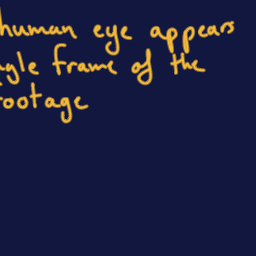 human eye appears
ngle frame of the
footage